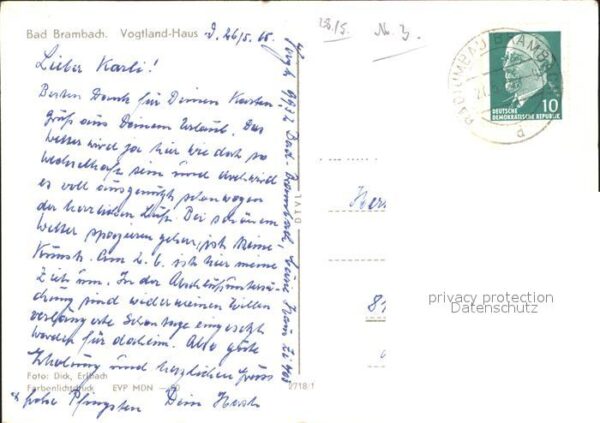 Bad Brambach. Vogtland-Haus
D. 26/5. 65.
28/5. No. 3.
Lieber Karli!
Besten Dank für Deinen Karten-
gruß aus Deinem Urlaub. Das
Wetter wird ja hier wie dort so
wechselhaft sein und doch wird
es voll ausgenützt schon wegen
der herrlichen Luft. Bei schönem
Wetter spazieren gehen, ist keine
Kunst. Am 2. 6. ist hier meine
Zeit um. In der Abschlußuntersu-
chung sind wider meinen Willen
verlängerte Schontage eingesetzt
worden für daheim. Also gute
Erholung und herzlichen Gruß
* frohe Pfingsten Dein
9932 Bad-Brambach, bei
Foto: Dick, Erlbach
Farbenlichtdruck EVP MDN —
2718/1
RADIUMBAD BRAMBACH
d
10
DEUTSCHE
DEMOKRATISCHE REPUBLIK
Her
8
privacy protection
Datenschutz